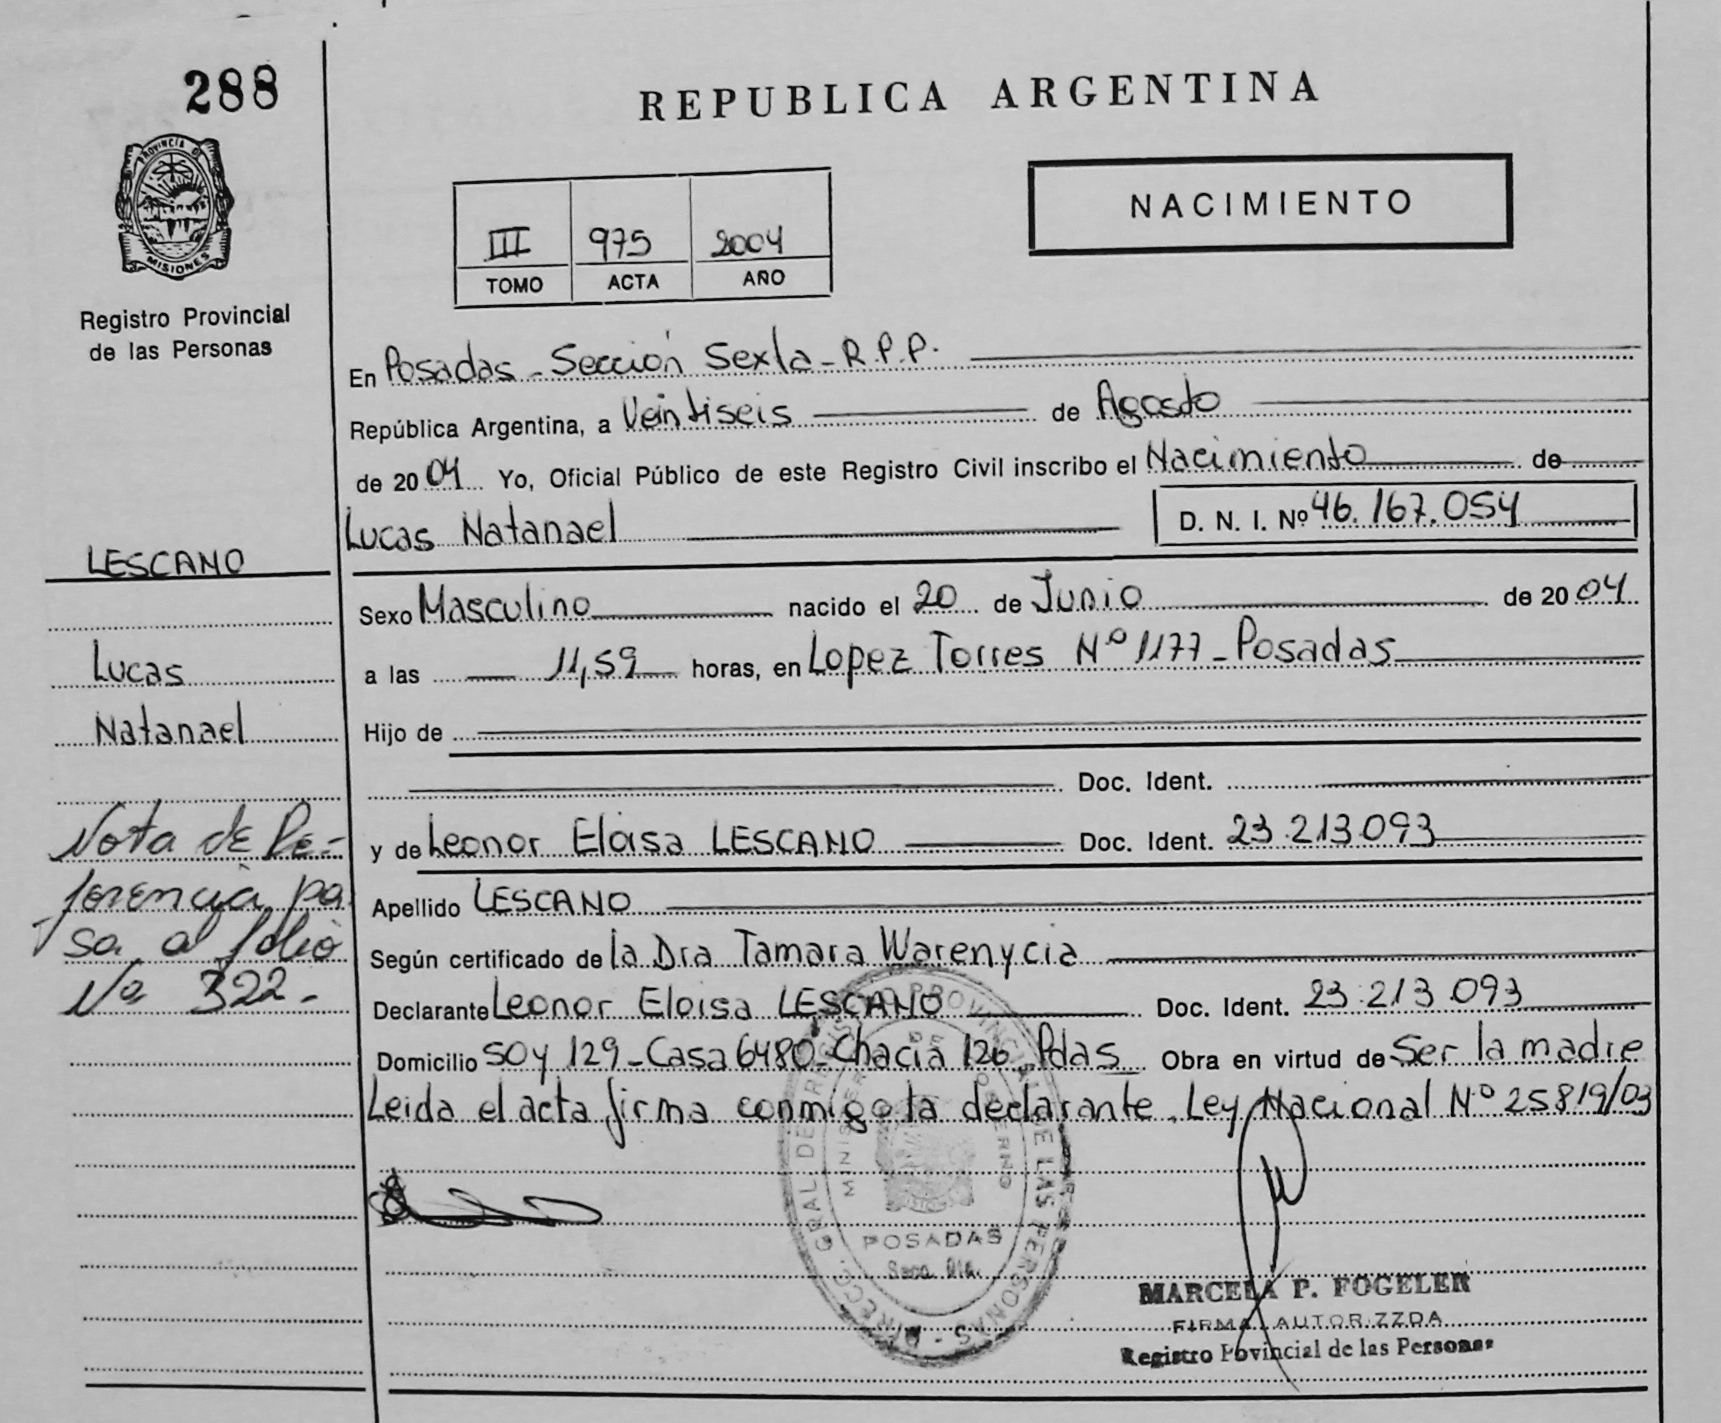 288
REPUBLICA ARGENTINA
PROVINCIA DE
MISIONES
Registro Provincial
de las Personas
III 975 2004
TOMO ACTA AÑO
NACIMIENTO
En Posadas - Sección Sexta - R.P.P.
República Argentina, a Veintiseis de Agosto
de 2004 Yo, Oficial Público de este Registro Civil inscribo el Nacimiento de
Lucas Natanael D. N. I. Nº 46.167.054
LESCANO
Sexo Masculino nacido el 20 de Junio de 2004
Lucas
a las 11,59 horas, en Lopez Torres Nº 1177 - Posadas
Natanael
Hijo de
Doc. Ident.
y de Leonor Eloisa LESCANO Doc. Ident. 23.213.093
Nota de Re-
ferencia pa
sa al folio
Nº 322.-
Apellido LESCANO
Según certificado de la Dra Tamara Warenycia
Declarante Leonor Eloisa LESCANO Doc. Ident. 23.213.093
Domicilio soy 129 - Casa 6480 - Chacra 126 Pdas Obra en virtud de Ser la madre
Leida el acta firma conmigo la declarante. Ley Nacional Nº 25819/03
DIRECC. GRAL. DE REGISTRO PROVINCIAL DE LAS PERSONAS
MINISTERIO DE GOBIERNO
POSADAS
MARCELA P. FOGELER
FIRMA AUTORIZZDA
Registro Povincial de las Personas